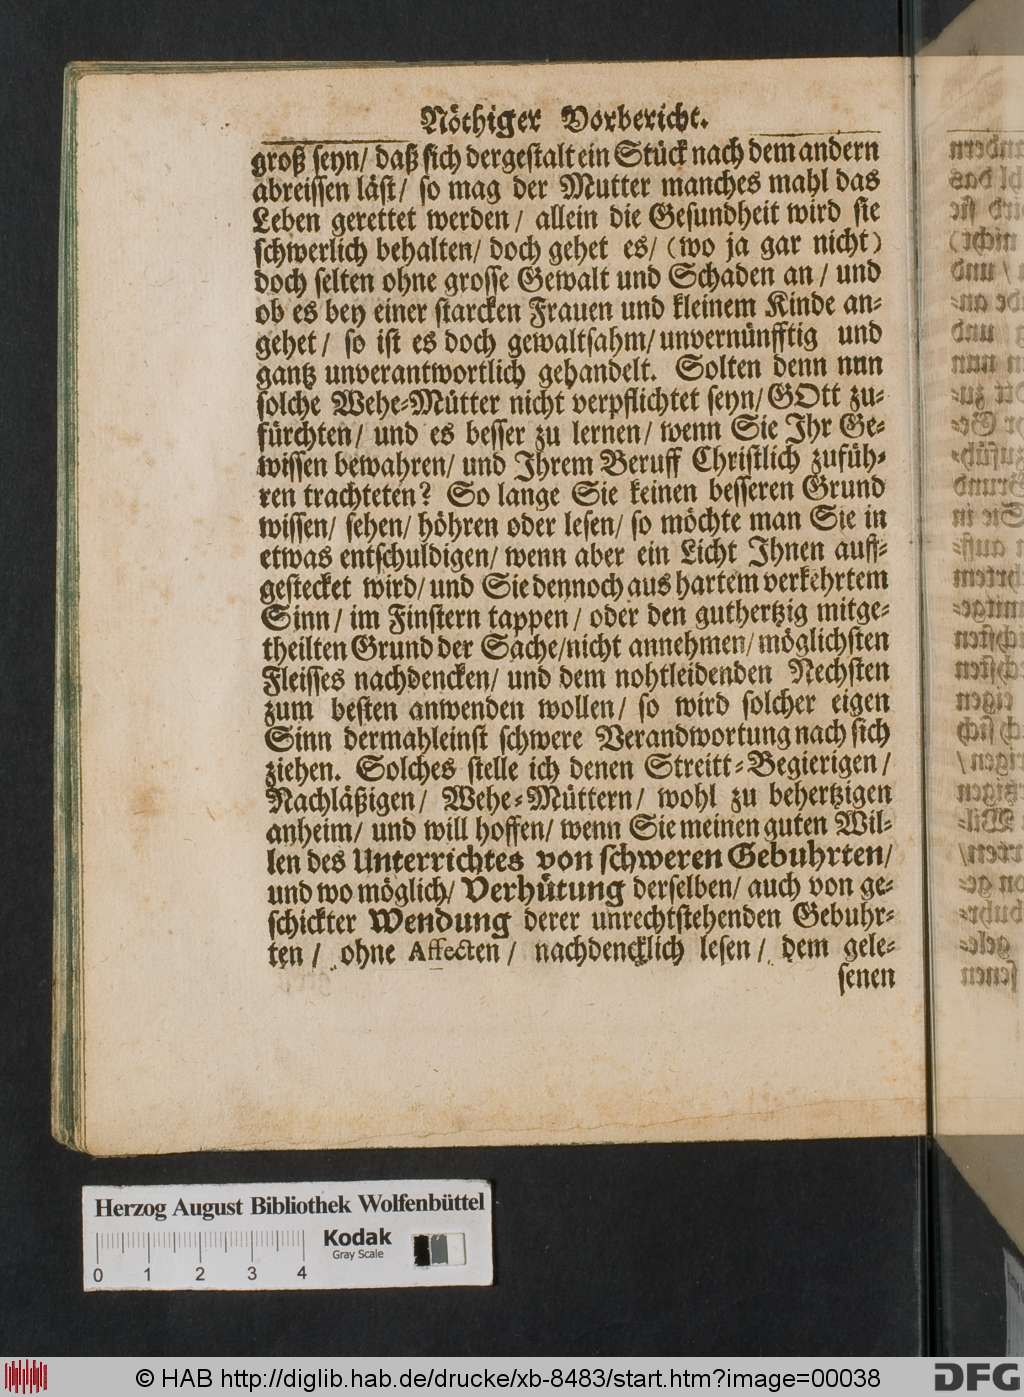 Nöthiger Vorbericht.
groß seyn/ daß sich dergestalt ein Stück nach dem andern
abreissen läst/ so mag der Mutter manches mahl das
Leben gerettet werden/ allein die Gesundheit wird sie
schwerlich behalten/ doch gehet es/ (wo ja gar nicht)
doch selten ohne grosse Gewalt und Schaden an/ und
ob es bey einer starcken Frauen und kleinem Kinde an-
gehet/ so ist es doch gewaltsahm/ unvernünfftig und
gantz unverantwortlich gehandelt. Solten denn nun
solche Wehe-Mütter nicht verpflichtet seyn/ GOtt zu-
fürchten/ und es besser zu lernen/ wenn Sie Ihr Ge-
wissen bewahren/ und Ihrem Beruff Christlich zufüh-
ren trachteten? So lange Sie keinen besseren Grund
wissen/ sehen/ höhren oder lesen/ so möchte man Sie in
etwas entschuldigen/ wenn aber ein Licht Ihnen auff-
gestecket wird/ und Sie dennoch aus hartem verkehrtem
Sinn/ im Finstern tappen/ oder den guthertzig mitge-
theilten Grund der Sache/ nicht annehmen/ möglichsten
Fleisses nachdencken/ und dem nohtleidenden Nechsten
zum besten anwenden wollen/ so wird solcher eigen
Sinn dermahleinst schwere Verandwortung nach sich
ziehen. Solches stelle ich denen Streitt-Begierigen/
Nachläßigen/ Wehe-Müttern/ wohl zu behertzigen
anheim/ und will hoffen/ wenn Sie meinen guten Wil-
len des Unterrichtes von schweren Gebuhrten/
und wo möglich/ Verhütung derselben/ auch von ge-
schickter Wendung derer unrechtstehenden Gebuhr-
ten/ ohne Affecten/ nachdencklich lesen/ dem gele-
senen
Herzog August Bibliothek Wolfenbüttel
Kodak
Gray Scale
0 1 2 3 4
© HAB http://diglib.hab.de/drucke/xb-8483/start.htm?image=00038
DFG